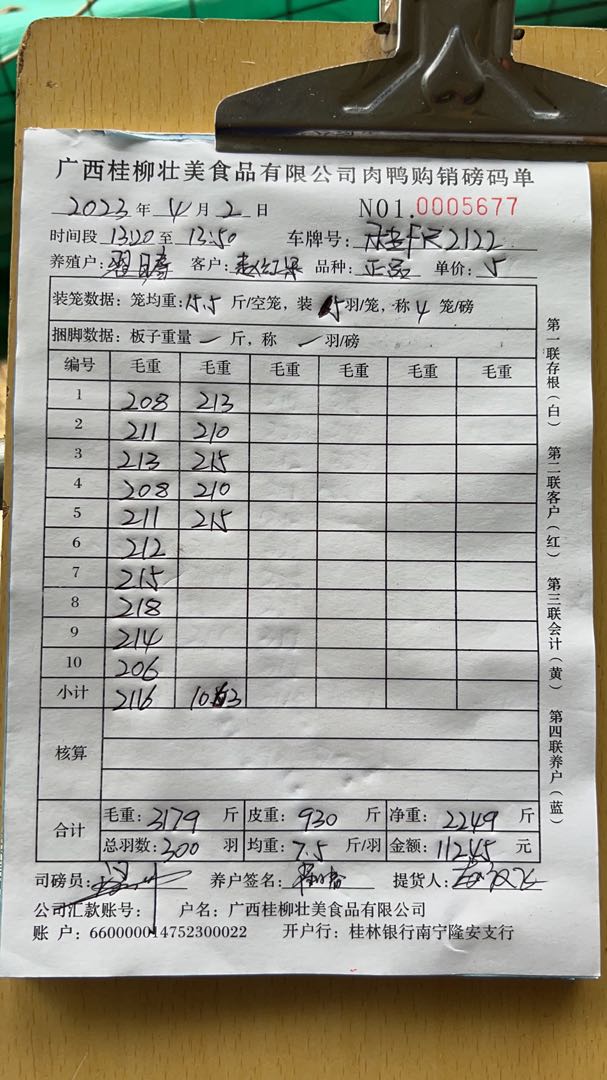 广西桂柳壮美食品有限公司肉鸭购销磅码单
2023 年 4 月 2 日 NO1.0005677
时间段 13:20 至 13:50 车牌号: 2122
养殖户: 客户: 品种: 正品 单价: 5
装笼数据: 笼均重: 15.5 斤/空笼, 装 15 羽/笼, 称 4 笼/磅
捆脚数据: 板子重量 — 斤, 称 — 羽/磅
编号 毛重 毛重 毛重 毛重 毛重 毛重
1 208 213
2 211 210
3 213 215
4 208 210
5 211 215
6 212
7 215
8 218
9 214
10 206
小计 2116 1063
核算
合计 毛重: 3179 斤 皮重: 930 斤 净重: 2249 斤
总羽数: 300 羽 均重: 7.5 斤/羽 金额: 11245 元
司磅员: 养户签名: 提货人:
公司汇款账号: 户名: 广西桂柳壮美食品有限公司
账 户: 660000014752300022 开户行: 桂林银行南宁隆安支行
第一联存根(白) 第二联客户(红) 第三联会计(黄) 第四联养户(蓝)